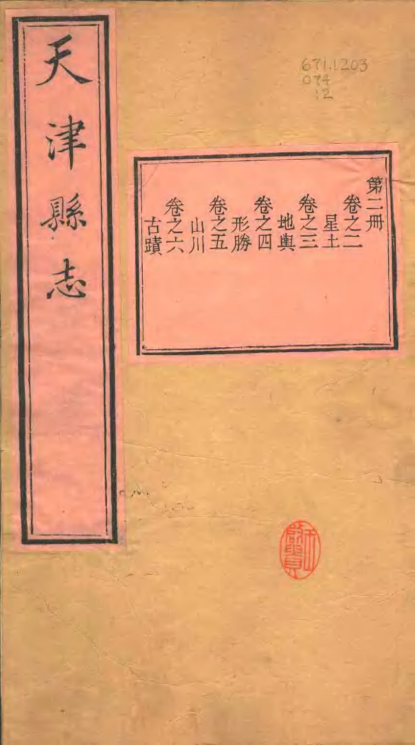 天津縣志
第二冊
卷之二
星土
卷之三
地輿
卷之四
形勝
卷之五
山川
卷之六
古蹟
671.1203
074
12